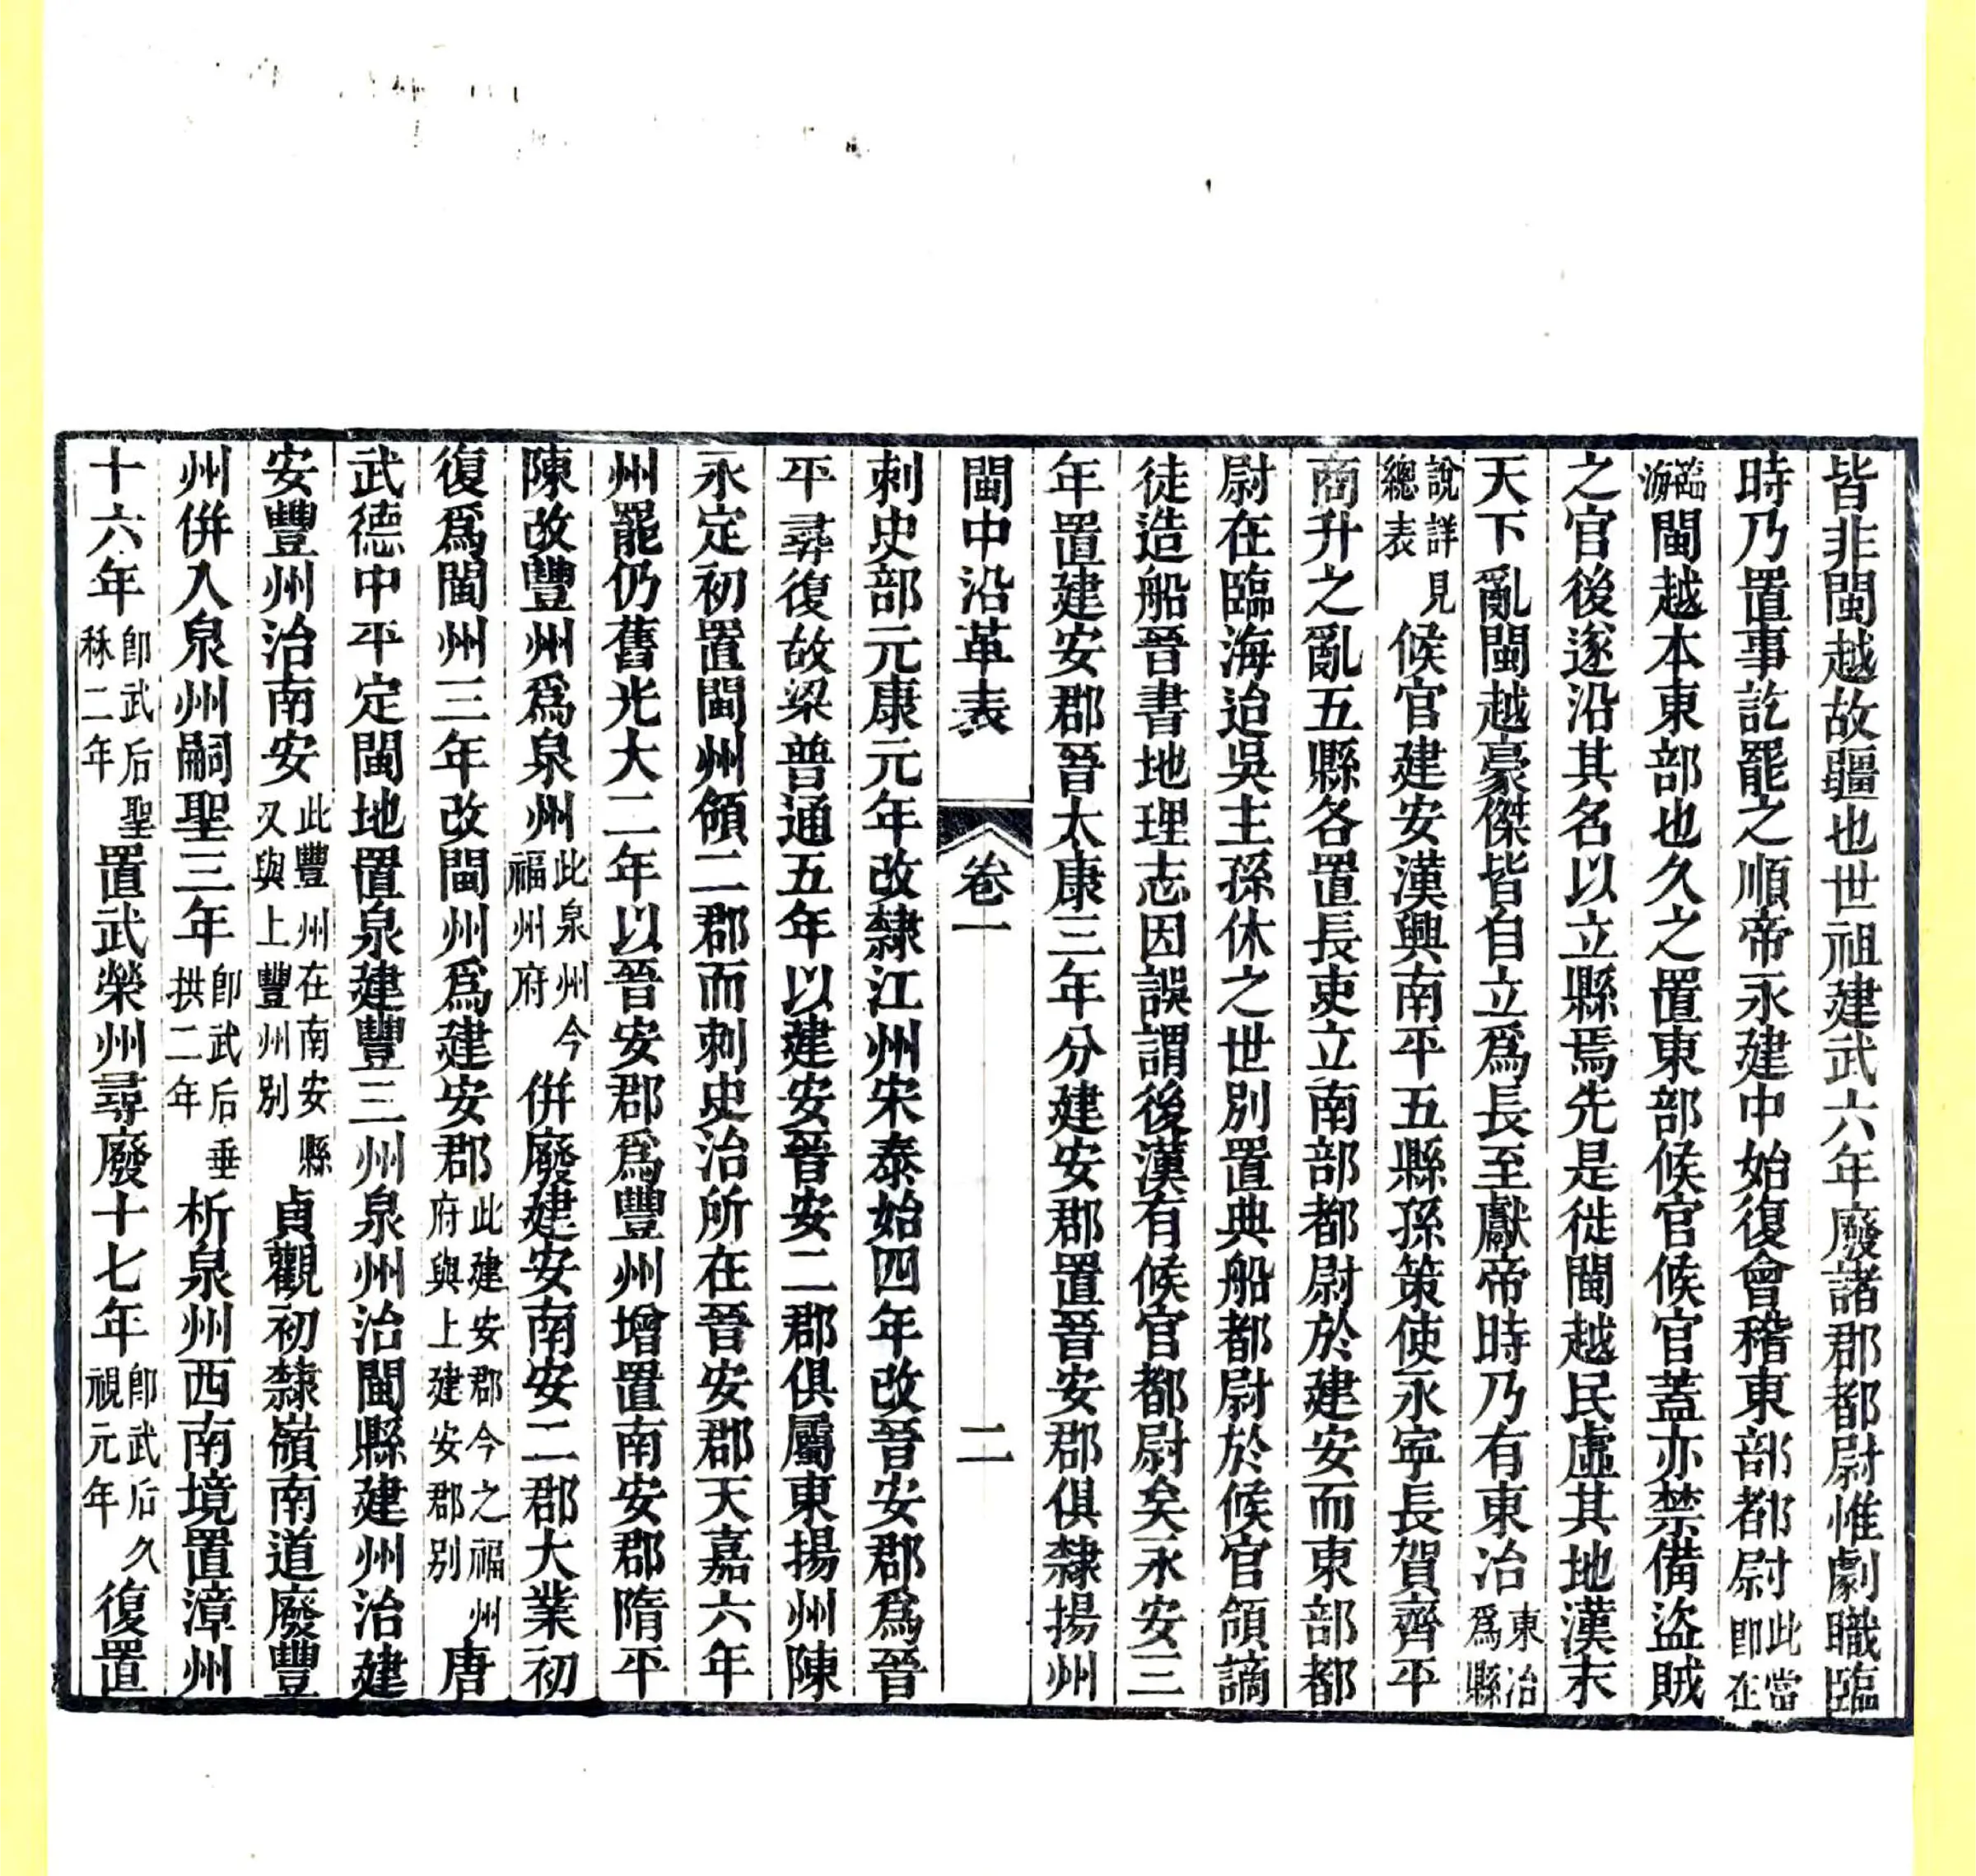 皆非閩越故疆也世祖建武六年廢諸郡都尉惟劇職臨
時乃置事訖罷之順帝永建中始復會稽東部都尉此當卽在
臨海閩越本東部也久之置東部候官候官蓋亦禁備盜賊
之官後遂沿其名以立縣焉先是徙閩越民虛其地漢末
天下亂閩越豪傑皆自立爲長至獻帝時乃有東冶東冶爲縣
說詳見總表候官建安漢興南平五縣孫策使永寧長賀齊平
商升之亂五縣各置長吏立南部都尉於建安而東部都
尉在臨海迨吳主孫休之世別置典船都尉於候官領謫
徒造船晉書地理志因誤謂後漢有候官都尉矣永安三
年置建安郡晉太康三年分建安郡置晉安郡俱隸揚州
閩中沿革表 卷一 二
刺史部元康元年改隸江州宋泰始四年改晉安郡爲晉
平尋復故梁普通五年以建安晉安二郡俱屬東揚州陳
永定初置閩州領二郡而刺史治所在晉安郡天嘉六年
州罷仍舊光大二年以晉安郡爲豐州增置南安郡隋平
陳改豐州爲泉州此泉州今福州府併廢建安南安二郡大業初
復爲閩州三年改閩州爲建安郡此建安郡今之福州府與上建安郡別唐
武德中平定閩地置泉建豐三州泉州治閩縣建州治建
安豐州治南安此豐州在南安縣又與上豐州別貞觀初隸嶺南道廢豐
州併入泉州嗣聖三年卽武后垂拱二年析泉州西南境置漳州
十六年卽武后聖秝二年置武榮州尋廢十七年卽武后久視元年復置